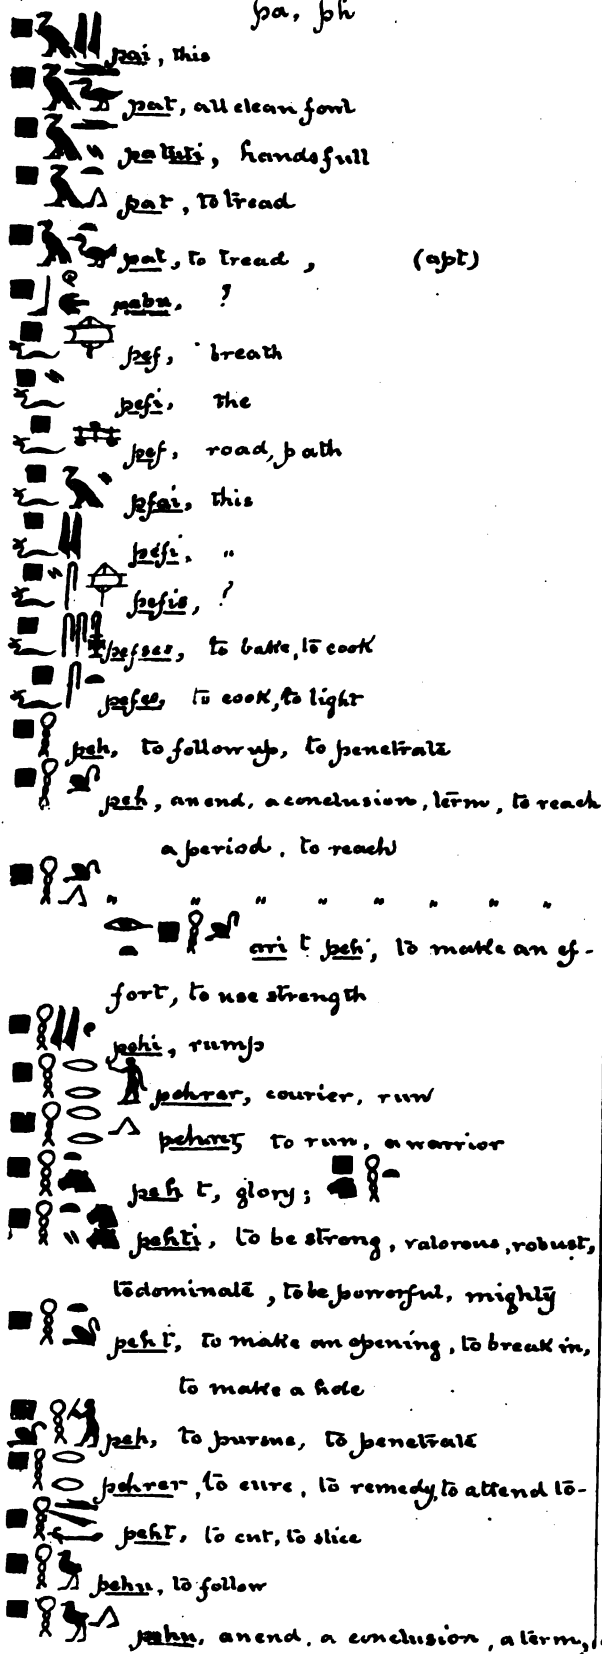 pa, ph
pai, this
pat, all clean fowl
patuti, handsfull
pat, to tread
pat, to tread, (apt)
pabu, ?
pef, breath
pefi, the
pef, road, path
pfai, this
pefi, "
pefis, ?
pefses, to bake, to cook
pefes, to cook, to light
peh, to follow up, to penetrate
peh, an end, a conclusion, term, to reach
a period, to reach
" " " " " " " "
ari t peh, to make an ef-
fort, to use strength
pehi, rump
pehrer, courier, run
to run, a warrior
peh t, glory;
pehti, to be strong, valorous, robust,
to dominate, to be powerful, mighty
peht, to make an opening, to break in,
to make a hole
peh, to pursue, to penetrate
pehrer, to cure, to remedy, to attend to-
peht, to cut, to slice
pehu, to follow
pehu, an end, a conclusion, a term,